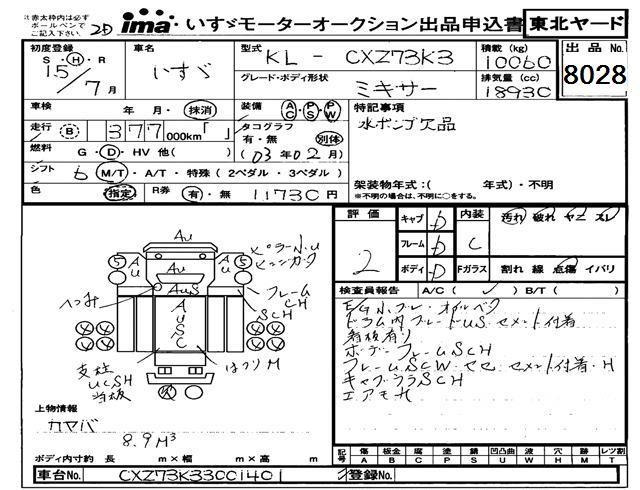 ※赤太枠内は必ず
ボールペンで
ご記入下さい。
ima いすゞモーターオークション出品申込書 東北ヤード
初度登録 S・H・R 15/7月
車名 いすゞ
型式 KL - CXZ73K3
積載(kg) 10060
出品No. 8028
グレード・ボディ形状 ミキサー
排気量(cc) 18930
車検 年・月・抹消
装備 AC・PS・PW
特記事項
水ポンプ欠品
走行 B 377,000km「 」
タコグラフ 有・無 別体
(03年02月)
燃料 G・D・HV 他( )
シフト 6 M/T・A/T・特殊(2ペダル・3ペダル)
架装物年式:( 年式)・不明
※不明の場合は、不明に○をする。
色 指定 R券 有・無 11730円
評価 2
キャブ D
フレーム D
ボディ D
内装 C
汚れ 破れ ヤニ スレ
Fガラス 割れ 線 点傷 イバリ
検査員報告 A/C( ✓ ) B/T( )
ドラム内ブレードUS セメント付着
看板有り
ボデーフレームSCH
キャブウラSCH
エアモH
Au
Au
Au
AuS
A
U
S
C
S
S
ヘコみ
フレーム
CH
SCH
支柱
UCSH
はつりM
上物情報
カヤバ
8.9M³
ボディ内寸約 長 m × 幅 m × 高 m
記号 傷 A 板金 B 腐 C 塗 P 錆 S 凹凸曲 U 波 W 穴 H 跡 M レツ割 T
車台No. CXZ73K33001401
登録No.